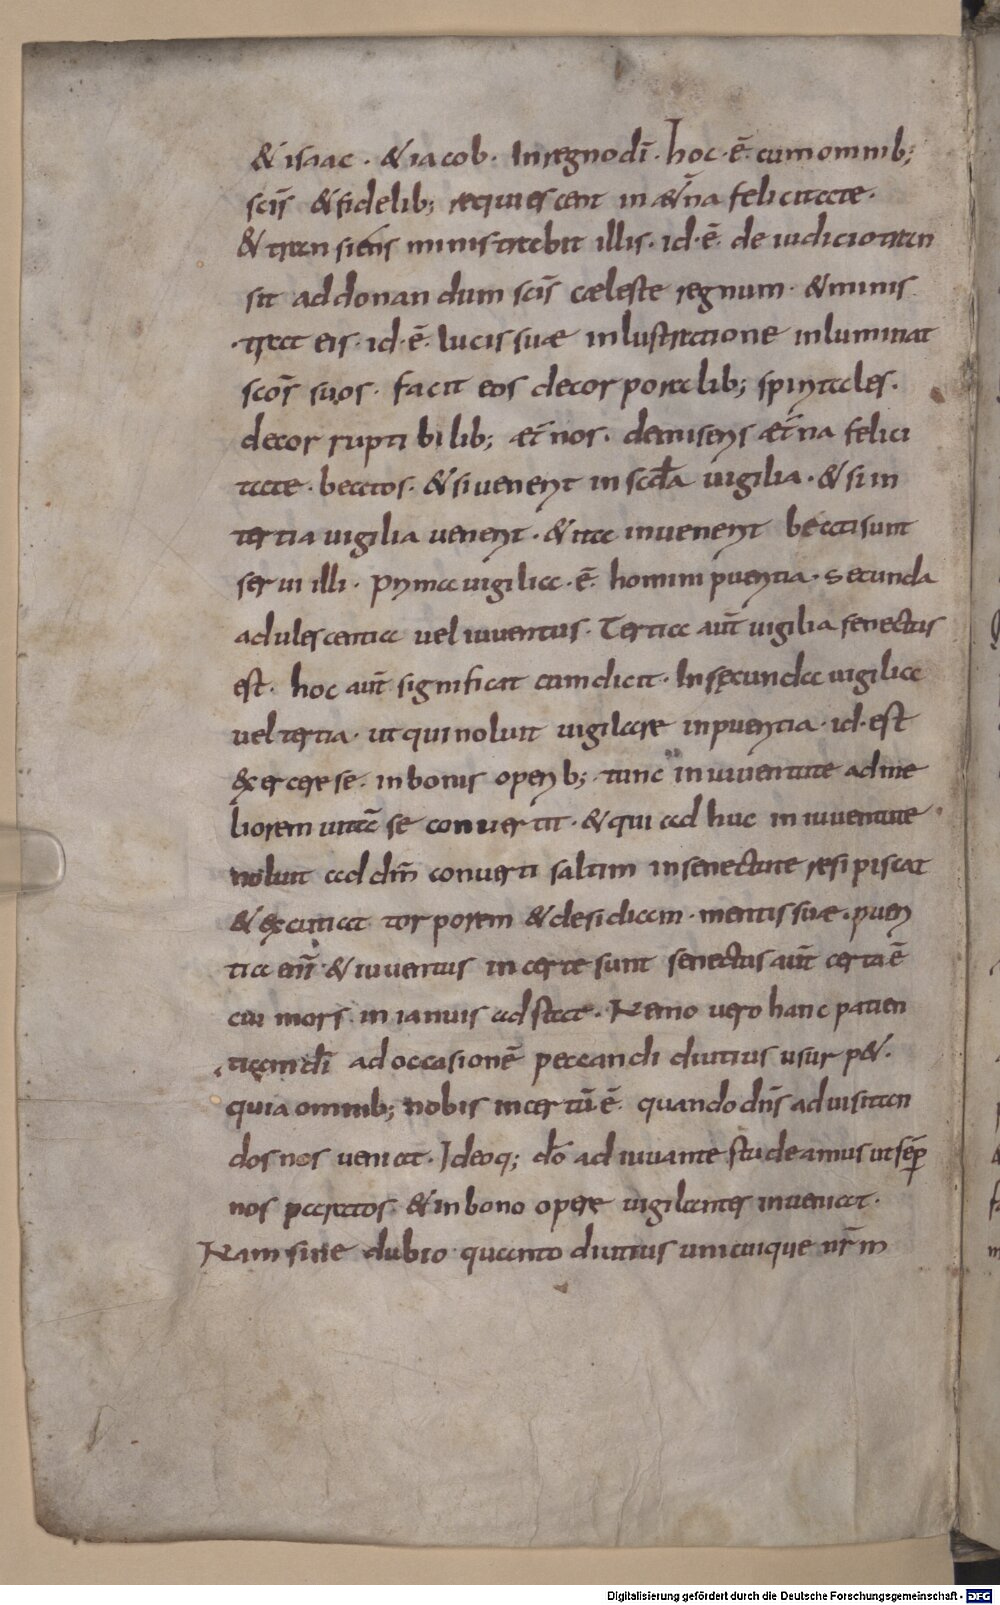 & isaac · & iacob · In regno dī · hoc · ē · cum omnib;
scīs & fidelib; requiescent in æt̄na felicitate ·
& transiens ministrabit illis · id · ē · de iudicio tran
sit ad donandum scīs cæleste regnum · & minis
trat eis · id · ē · lucis suæ inlustratione inluminat
scōs suos · facit eos de corporalib; spiritales ·
de corruptibilib; æt̄nos · de miseris æt̄na felici
tate · beatos · & si venerit in scđa vigilia · & si in
tertia vigilia venerit · & ita invenerit beati sunt
servi illi · Prima vigilia · ē · homini pueritia · Secunda
adulescentia vel iuventus · Tertia aūt vigilia senectus
est · hoc aūt significat cum dicit · In secunda vigilia
vel tertia · ut qui noluit vigilare in pueritia · id · est
exercere se · in bonis operib; · tunc in iuventute ad me
liorem vitā se convertit · & qui ad huc in iuventute
noluit ad dm̄ converti saltim in senectute resipiscat
& excutiat torporem & desidiam · mentis suæ · pueri
tia enī · & iuventus incerte sunt senectus aūt certa ē
cui mors in ianuis adstat · Nemo vero hanc patien
tiam dī ad occasionē peccandi diutius usurp& ·
quia omnib; nobis incertū ē · quando dn̄s ad visitan
dos nos veniat · Ideoq; dō adiuvante studeamus ut sēp
nos paratos · & in bono opere vigilantes inveniat ·
Nam sine dubio quanto diutius unicuique nr̄m
Digitalisierung gefördert durch die Deutsche Forschungsgemeinschaft · DFG